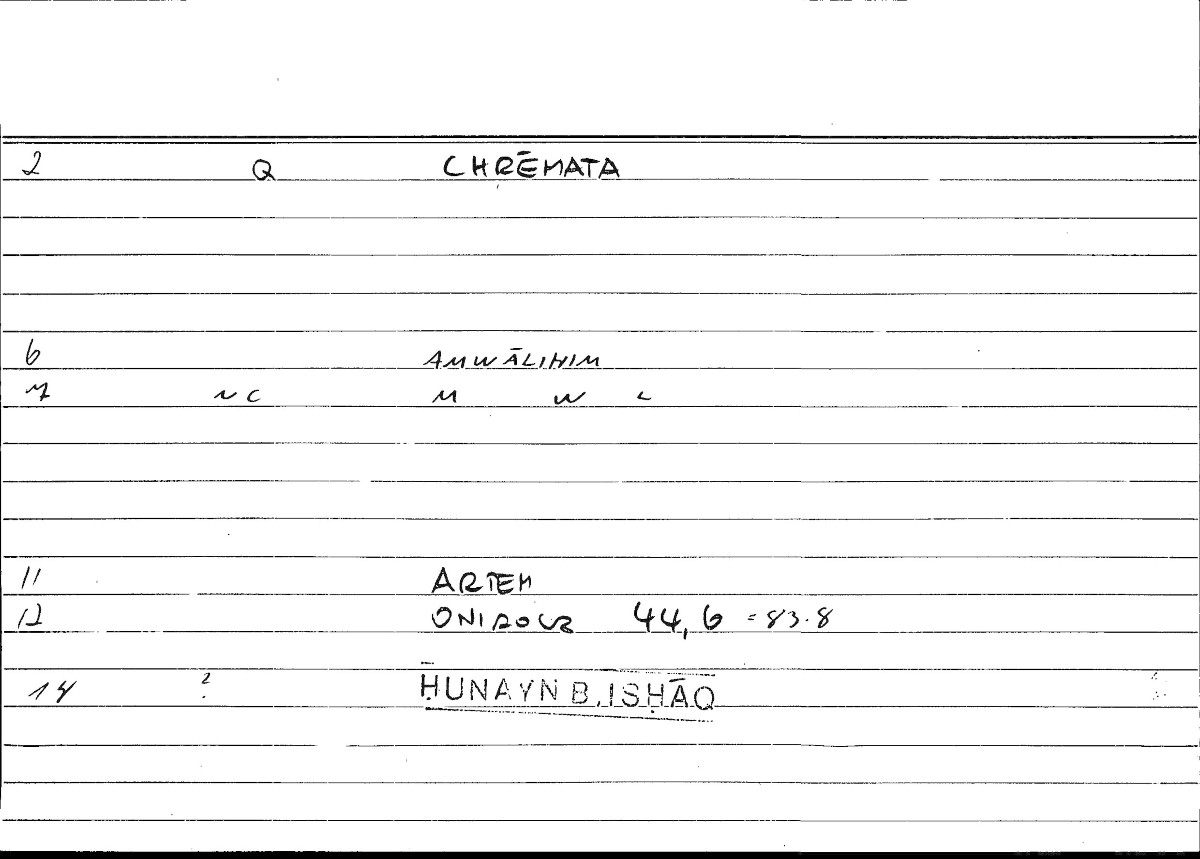 2 Q CHRĒMATA
6 AMWĀLIHIM
7 NC M W L
11 ARTEM
12 ONIROCR 44,6 = 83.8
14 2 ḤUNAYN B. ISḤĀQ